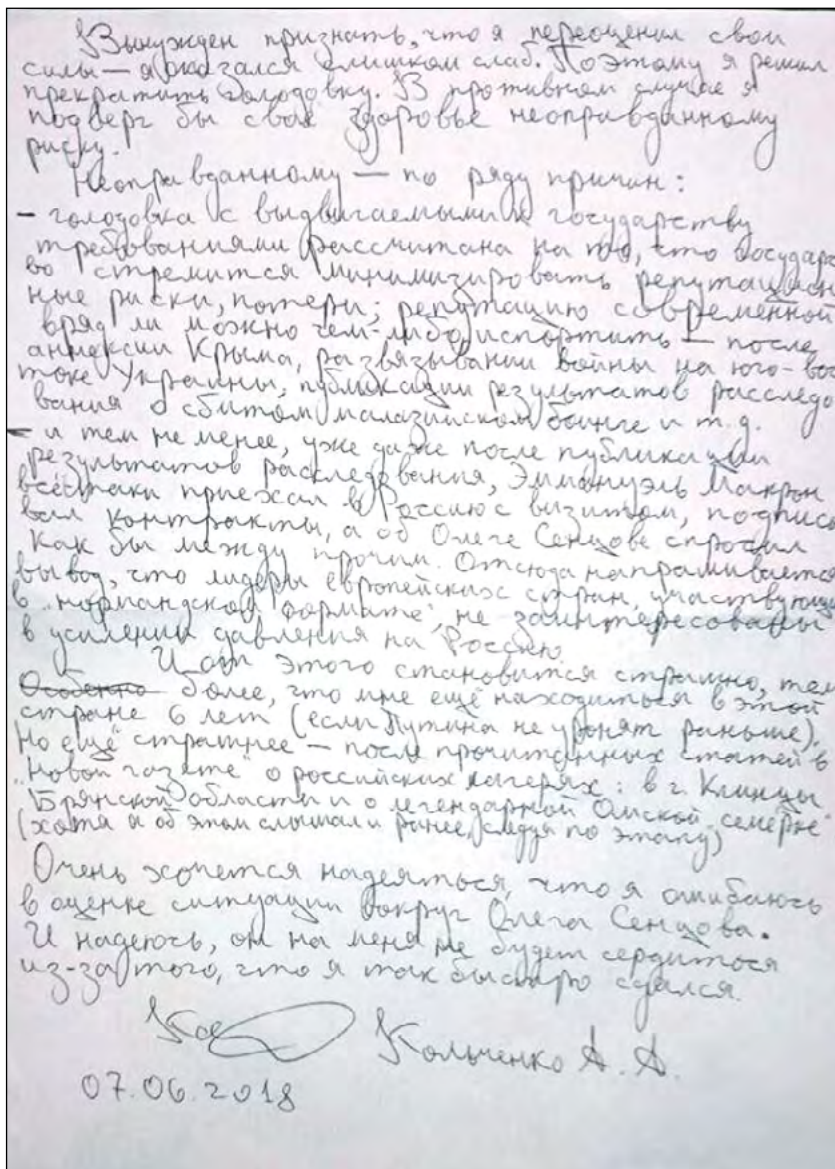 Вынужден признать, что я переоценил свои
силы — я оказался слишком слаб. Поэтому я решил
прекратить голодовку. В противном случае я
подверг бы своё здоровье неоправданному
риску.
Неоправданному — по ряду причин:
- голодовка с выдвигаемыми к государству
требованиями рассчитана на то, что государс
во стремится минимизировать репутацион
ные риски, потери; репутацию современной
вряд ли можно чем-либо испортить — после
аннексии Крыма, развязывании войны на юго-вос
токе Украины, публикации результатов расследо
вания о сбитом малазийском боинге и т.д.
- и тем не менее, уже даже после публикации
результатов расследования, Эммануэль Макрон
всё-таки приехал в Россию с визитом, подписы
вал контракты, а об Олеге Сенцове спросил
как бы между прочим. Отсюда напрашивается
вывод, что лидеры европейских стран, участвующие
в "нормандском формате", не заинтересованы
в усилении давления на Россию.
И от этого становится страшно, тем
Особенно более, что мне ещё находиться в этой
стране 6 лет (если Путина не уронят раньше).
Но ещё страшнее — после прочитанных статей в
"Новой газете" о российских лагерях: в г. Клинцы
Брянской области и о легендарной Омской "семёрке"
(хотя и об этом слышал и ранее, следуя по этапу)
Очень хочется надеяться, что я ошибаюсь
в оценке ситуации вокруг Олега Сенцова.
И надеюсь, он на меня не будет сердиться
из-за того, что я так быстро сдался.
Кольченко А. А.
07.06.2018